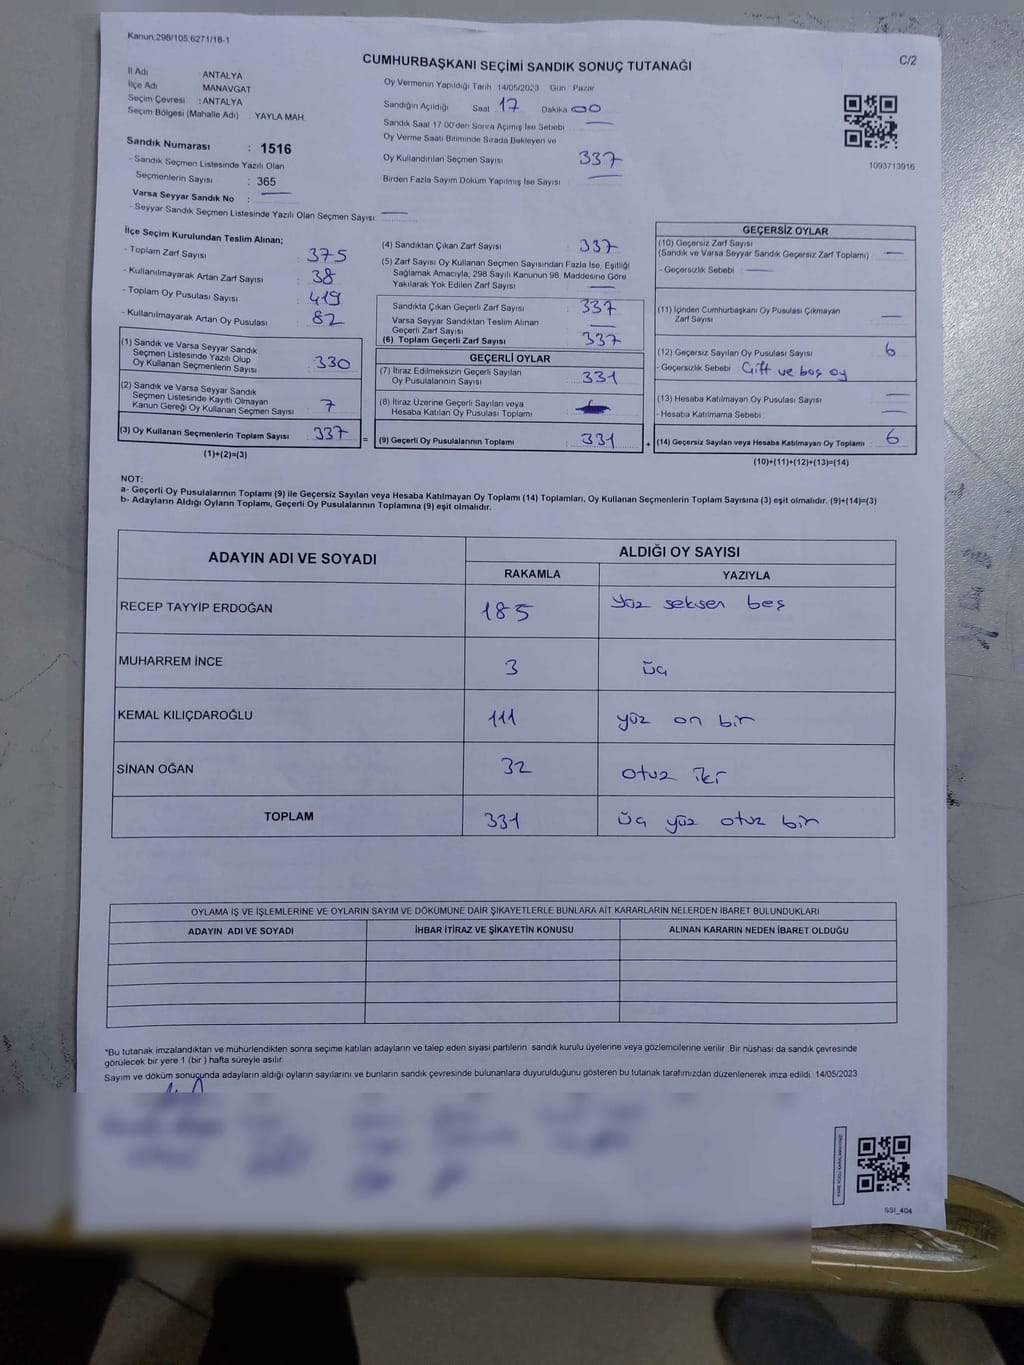 Kanun,298/105,6271/18-1
C/2
CUMHURBAŞKANI SEÇİMİ SANDIK SONUÇ TUTANAĞI
İl Adı : ANTALYA
İlçe Adı MANAVGAT
Seçim Çevresi : ANTALYA
Seçim Bölgesi (Mahalle Adı) YAYLA MAH.
Sandık Numarası : 1516
- Sandık Seçmen Listesinde Yazılı Olan
Seçmenlerin Sayısı : 365
Varsa Seyyar Sandık No :
- Seyyar Sandık Seçmen Listesinde Yazılı Olan Seçmen Sayısı:
Oy Vermenin Yapıldığı Tarih 14/05/2023 Gün Pazar
Sandığın Açıldığı Saat 17 Dakika 00
Sandık Saat 17.00'den Sonra Açılmış İse Sebebi
Oy Verme Saati Bitiminde Sırada Bekleyen ve
Oy Kullandırılan Seçmen Sayısı 337
Birden Fazla Sayım Döküm Yapılmış İse Sayısı
1093713916
İlçe Seçim Kurulundan Teslim Alınan;
- Toplam Zarf Sayısı : 375
- Kullanılmayarak Artan Zarf Sayısı : 38
- Toplam Oy Pusulası Sayısı : 419
- Kullanılmayarak Artan Oy Pusulası : 82
(1) Sandık ve Varsa Seyyar Sandık
Seçmen Listesinde Yazılı Olup
Oy Kullanan Seçmenlerin Sayısı : 330
(2) Sandık ve Varsa Seyyar Sandık
Seçmen Listesinde Kayıtlı Olmayan
Kanun Gereği Oy Kullanan Seçmen Sayısı : 7
(3) Oy Kullanan Seçmenlerin Toplam Sayısı : 337
(1)+(2)=(3)
=
(4) Sandıktan Çıkan Zarf Sayısı : 337
(5) Zarf Sayısı Oy Kullanan Seçmen Sayısından Fazla İse, Eşitliği
Sağlamak Amacıyla, 298 Sayılı Kanunun 98. Maddesine Göre
Yakılarak Yok Edilen Zarf Sayısı
Sandıkta Çıkan Geçerli Zarf Sayısı : 337
Varsa Seyyar Sandıktan Teslim Alınan
Geçerli Zarf Sayısı
(6) Toplam Geçerli Zarf Sayısı 337
GEÇERLİ OYLAR
(7) İtiraz Edilmeksizin Geçerli Sayılan
Oy Pusulalarının Sayısı : 331
(8) İtiraz Üzerine Geçerli Sayılan veya
Hesaba Katılan Oy Pusulası Toplamı
(9) Geçerli Oy Pusulalarının Toplamı : 331
+
GEÇERSİZ OYLAR
(10) Geçersiz Zarf Sayısı
(Sandık ve Varsa Seyyar Sandık Geçersiz Zarf Toplamı)
- Geçersizlik Sebebi
(11) İçinden Cumhurbaşkanı Oy Pusulası Çıkmayan
Zarf Sayısı
(12) Geçersiz Sayılan Oy Pusulası Sayısı 6
- Geçersizlik Sebebi Çift ve boş oy
(13) Hesaba Katılmayan Oy Pusulası Sayısı
- Hesaba Katılmama Sebebi
(14) Geçersiz Sayılan veya Hesaba Katılmayan Oy Toplamı : 6
(10)+(11)+(12)+(13)=(14)
NOT:
a- Geçerli Oy Pusulalarının Toplamı (9) ile Geçersiz Sayılan veya Hesaba Katılmayan Oy Toplamı (14) Toplamları, Oy Kullanan Seçmenlerin Toplam Sayısına (3) eşit olmalıdır. (9)+(14)=(3)
b- Adayların Aldığı Oyların Toplamı, Geçerli Oy Pusulalarının Toplamına (9) eşit olmalıdır.
ADAYIN ADI VE SOYADI ALDIĞI OY SAYISI
RAKAMLA YAZIYLA
RECEP TAYYİP ERDOĞAN 185 yüz seksen beş
MUHARREM İNCE 3 üç
KEMAL KILIÇDAROĞLU 111 yüz on bir
SİNAN OĞAN 32 otuz iki
TOPLAM 331 üç yüz otuz bir
OYLAMA İŞ VE İŞLEMLERİNE VE OYLARIN SAYIM VE DÖKÜMÜNE DAİR ŞİKAYETLERLE BUNLARA AİT KARARLARIN NELERDEN İBARET BULUNDUKLARI
ADAYIN ADI VE SOYADI İHBAR İTİRAZ VE ŞİKAYETİN KONUSU ALINAN KARARIN NEDEN İBARET OLDUĞU
*Bu tutanak imzalandıktan ve mühürlendikten sonra seçime katılan adayların ve talep eden siyasi partilerin sandık kurulu üyelerine veya gözlemcilerine verilir .Bir nüshası da sandık çevresinde
görülecek bir yere 1 (bir ) hafta süreyle asılır.
Sayım ve döküm sonucunda adayların aldığı oyların sayılarını ve bunların sandık çevresinde bulunanlara duyurulduğunu gösteren bu tutanak tarafımızdan düzenlenerek imza edildi. 14/05/2023
SSI_404